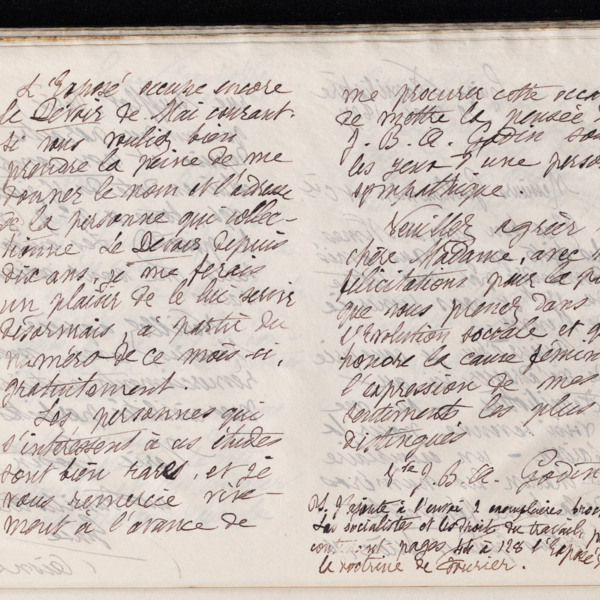 L'Exposé occupe encore
le Devoir de Mai courant.
si vous vouliez bien
prendre la peine de me
donner le nom et l'adresse
de la personne qui collec-
tionne Le Devoir depuis
dix ans, je me ferais
un plaisir de le lui servir
désormais, à partir du
numéro de ce mois-ci,
gratuitement.
Les personnes qui
s'intéressent à ces études
sont bien rares, et je
vous remercie vive-
ment à l'avance de
me procurer cette occa
de mettre la pensée
J. B. A. Godin sou
les yeux d'une perso
sympathique.
Veuillez agréer
chère Madame, avec
félicitations pour la pa
que vous prenez dans
l'Evolution sociale et q
honore la cause fémin
l'expression de mes
sentiments les plus
distingués
Vve J. B. A. Godin
PS. J'ajoute à l'envoi 2 exemplaires broc
Les socialistes et les droits du travail,
contenant pages à 128 l'Exposé
la doctrine de Fourier.